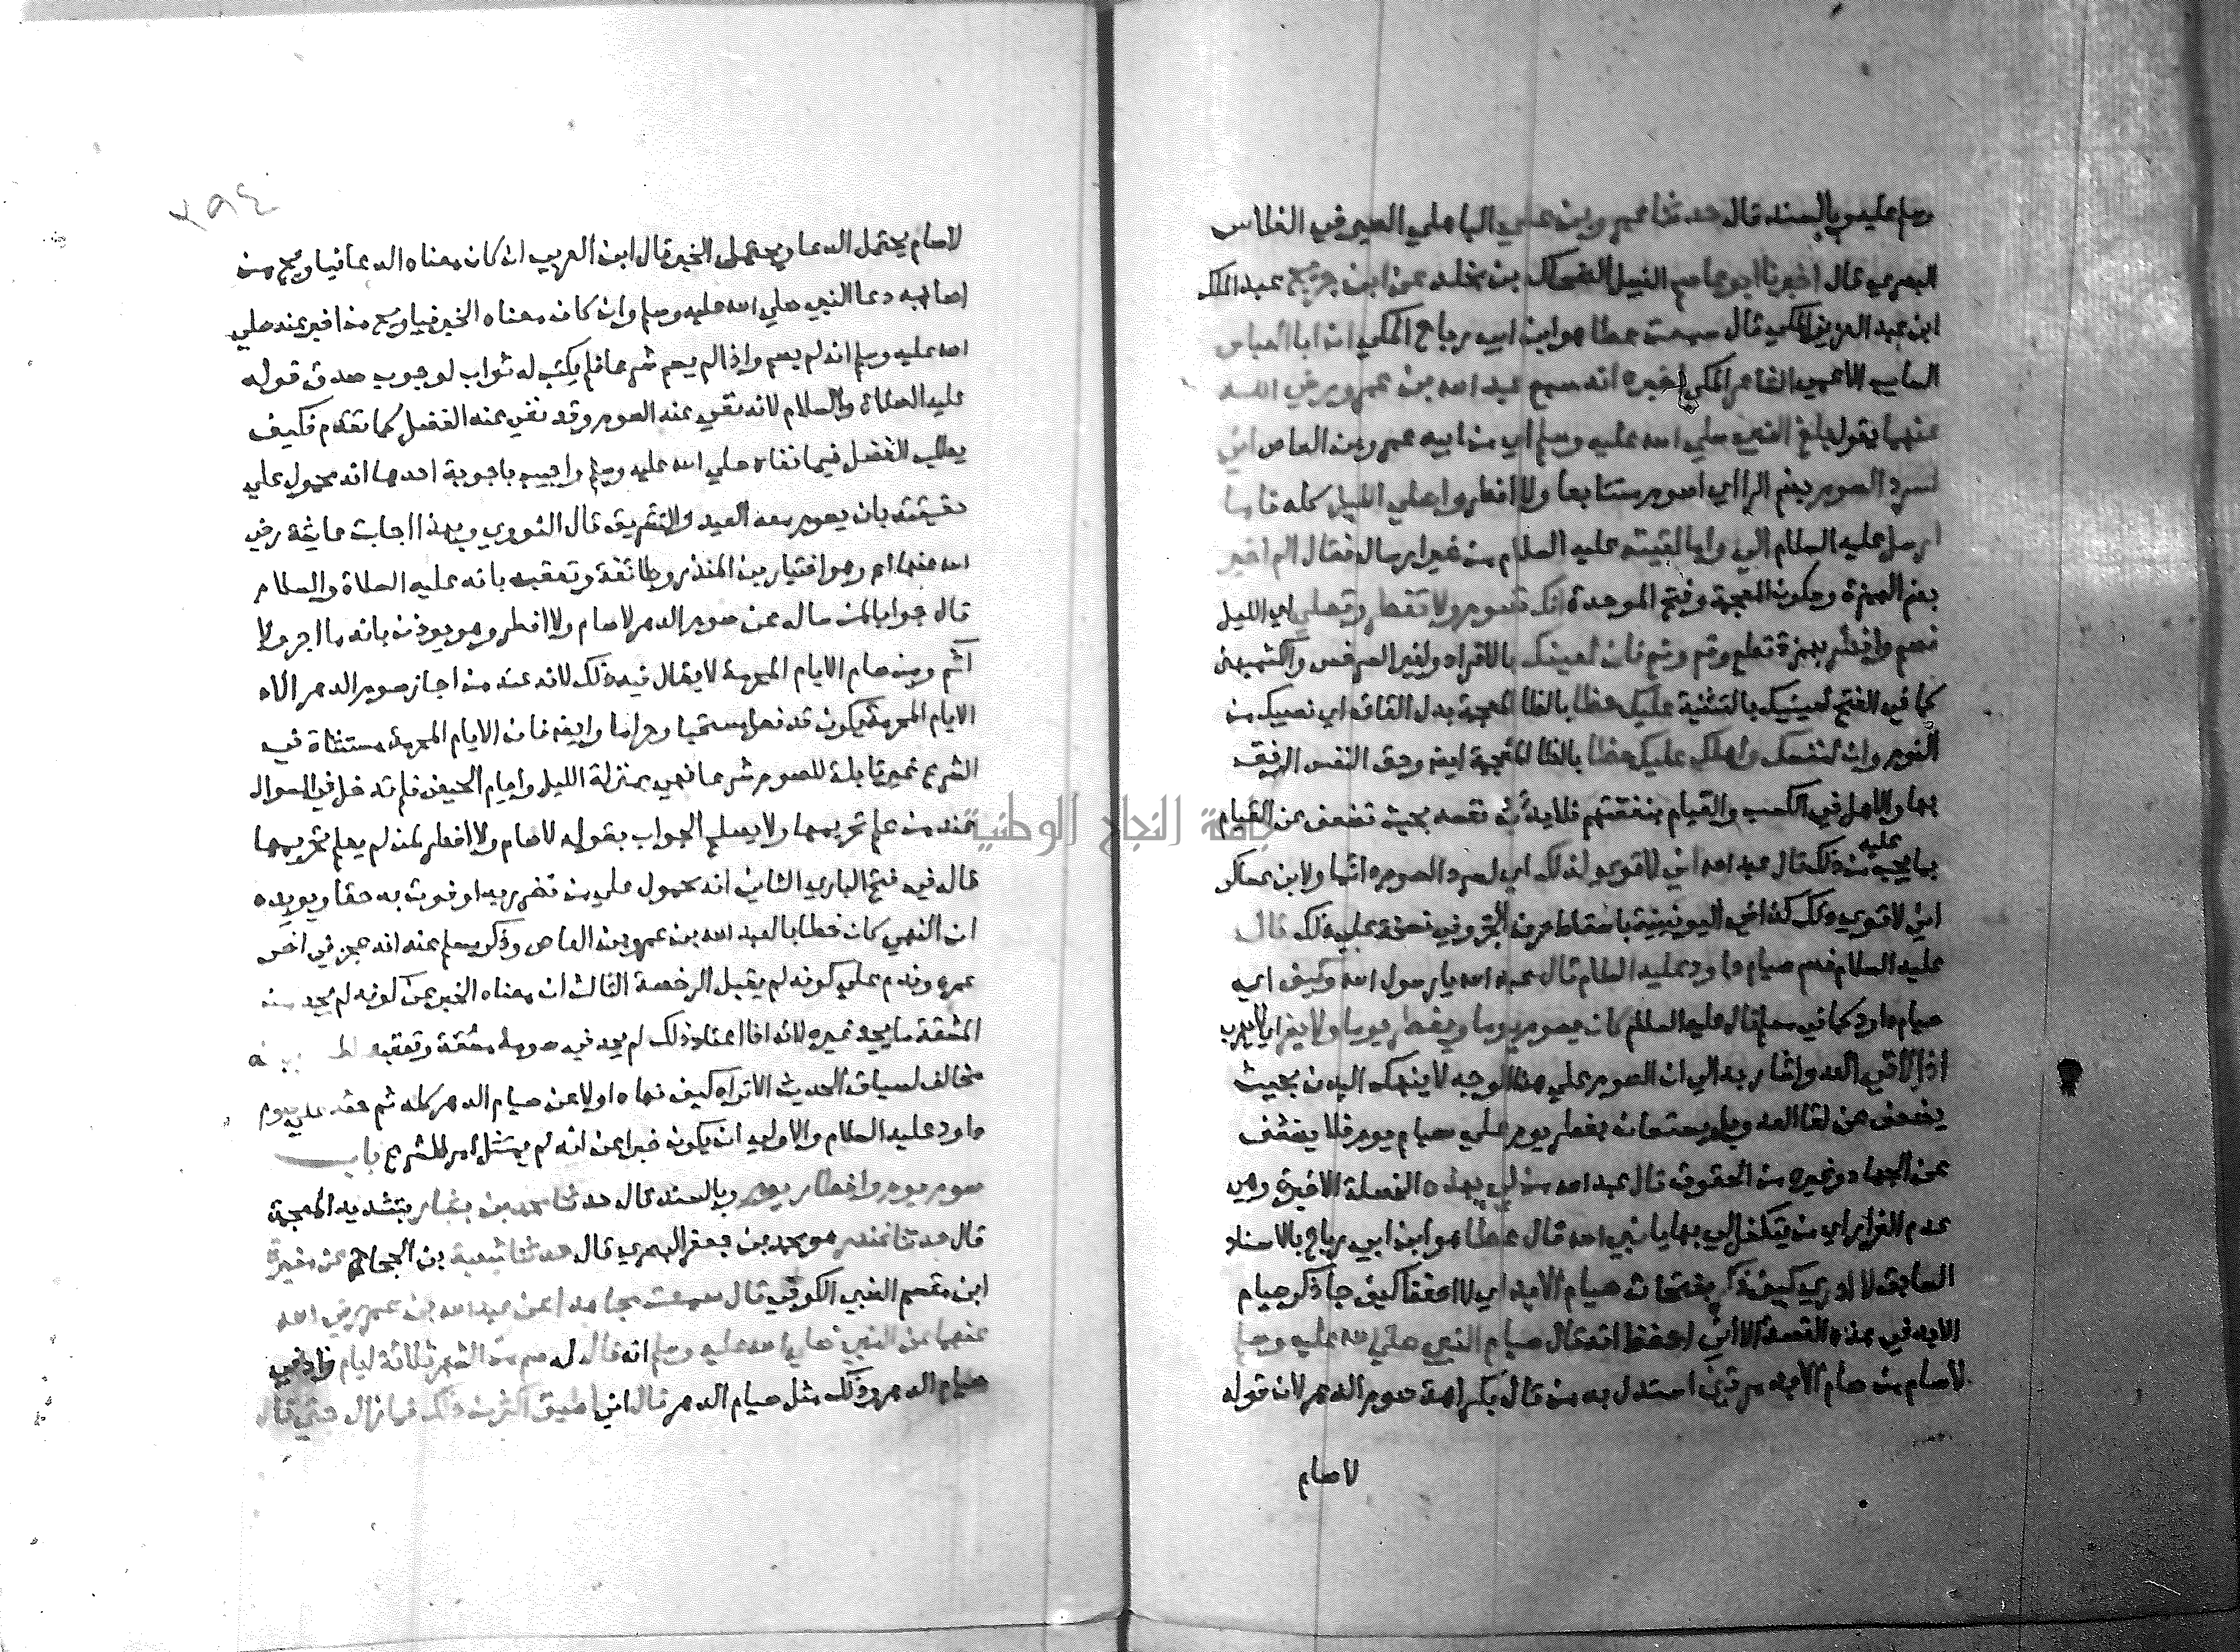 وسلم عليه وبالسند قال حدثنا عمرو بن علي الباهلي الصيرفي الفلاس
البصري قال اخبرنا ابو عاصم النبيل الضحاك بن مخلد عن ابن جريج عبد الملك
ابن عبد العزيز المكي قال سمعت عطا هو ابن ابي رباح المكي ان ابا العباس
السايب الاعمى الشاعر المكي اخبره انه سمع عبد الله بن عمرو رضي الله
عنهما يقول بلغ النبي صلي الله عليه وسلم اي من ابيه عمرو بن العاص اني
اسرد الصوم بضم الرا اي اصوم متتابعا ولا افطر واصلي الليل كله فاما
ارسل عليه السلام الي واما لقيته عليه السلام من غير ارسال فقال الم اخبر
بضم الهمزة وسكون المعجمة وفتح الموحدة انك تصوم ولا تفطر وتصلي اي الليل
فصم وافطر بهمزة قطع وقم ونم فان لعينك بالافراد ولغير السرخسي والكشميهني
كما في الفتح لعينيك بالتثنية عليك حظا بالظا المعجمة بدل القاف اي نصيبك من
النوم وان لنفسك واهلك عليك حظا بالظا المعجمة ايضا وحق النفس الرفق
بها والاهل في الكسب والقيام بنفقتهم فلا يدئب نفسه بحيث تضعف عن القيام
بما يجب عليه من ذلك قال عبد الله اني لاقوي لذلك اي لسرد الصوم دائما ولابن عساكر
اني لاقوي ذلك كذا في اليونينية باسقاط حرف الجر وفي نسخة علي ذلك قال
عليه السلام فصم صيام داود عليه السلام قال عبد الله يا رسول الله وكيف اي
صيام داود كما في مسلم قال عليه السلام كان يصوم يوما ويفطر يوما ولا يفر اي لا يهرب
اذا لاقي العدو واشار به الي ان الصوم علي هذا الوجه لا ينهك البدن بحيث
يضعف عن لقا العدو بل يستعان بفطر يوم علي صيام يوم فلا يضعف
عن الجهاد وغيره من الحقوق قال عبد الله من لي بهذه الخصلة الاخيرة وهي
عدم الفرار اي من يتكفل لي بها يا نبي الله قال عطا هو ابن ابي رباح بالاسناد
السابق لا ادري كيف ذكر بفتحات صيام الابد اي لا احفظ كيف جا ذكر صيام
الابد في هذه القصة الا اني احفظ انه قال صيام النبي صلي الله عليه وسلم
لا صام من صام الابد مرتين استدل به من قال بكراهة صوم الدهر لان قوله
لا صام
٢٩٤
لا صام يحتمل الدعا ويحتمل الخبر قال ابن العربي ان كان معناه الدعا فيا ويح من
اصابه دعا النبي صلي الله عليه وسلم وان كان معناه الخبر فيا ويح من اخبر عنه صلي
الله عليه وسلم انه لم يصم واذا لم يصم شرعا فلم يكتب له ثواب لوجوب صدق قوله
عليه الصلاة والسلام لانه نفي عنه الصوم وقد نفي عنه الفضل كما تقدم فكيف
يطلب الفضل فيما نفاه صلي الله عليه وسلم واجيب باجوبة احدها انه محمول علي
حقيقته بان يصوم معه العيد والتشريق قال النووي وبهذا اجابت عايشة رضي
الله عنها اه وهو اختيار بن المنذر وطائفة وتعقب بانه عليه الصلاة والسلام
قال جوابا لمن ساله عن صوم الدهر لا صام ولا افطر وهو يوذن بانه ما اجر ولا
اثم ومن صام الايام المحرمة لا يقال فيه ذلك لانه عند من اجاز صوم الدهر الا
الايام المحرمة يكون قد فعل مستحبا وحراما وايضا فان الايام المحرمة مستثناة في
الشرع غير قابلة للصوم شرعا فهي بمنزلة الليل وايام الحيض فلم تدخل في السوال
عند من علم تحريمها ولا يصلح الجواب بقوله لا صام ولا افطر لمن لم يعلم تحريمها
قاله في فتح الباري الثاني انه محمول علي من تضرر به او فوت به حقا ويويده
ان النهي كان خطابا لعبد الله بن عمرو بن العاص وذكر مسلم عنه انه عجز في اخر
عمره وندم علي كونه لم يقبل الرخصة الثالث ان معناه الخبر عن كونه لم يجد من
المشقة ما يجد غيره لانه اذا اعتاد ذلك لم يجد في صومه مشقة وتعقبه
مخالف لسياق الحديث الا تراه كيف نهاه اولا عن صيام الدهر كله ثم حثه علي صوم
داود عليه السلام والاولي ان يكون خبرا عن انه لم يمتثل امر الشرع باب
صوم يوم وافطار يوم وبالسند قال حدثنا محمد بن بشار بتشديد المعجمة
قال حدثنا غندر هو محمد بن جعفر البصري قال حدثنا شعبة بن الحجاج عن مغيرة
ابن مقسم الضبي الكوفي قال سمعت مجاهدا عن عبد الله بن عمرو رضي الله
عنهما عن النبي صلي الله عليه وسلم انه قال له صم من الشهر ثلاثة ايام
صيام الدهر وذلك مثل صيام الدهر قال اني اطيق اكثر من ذلك فما زال حتي قال
جامعة النجاح الوطنية